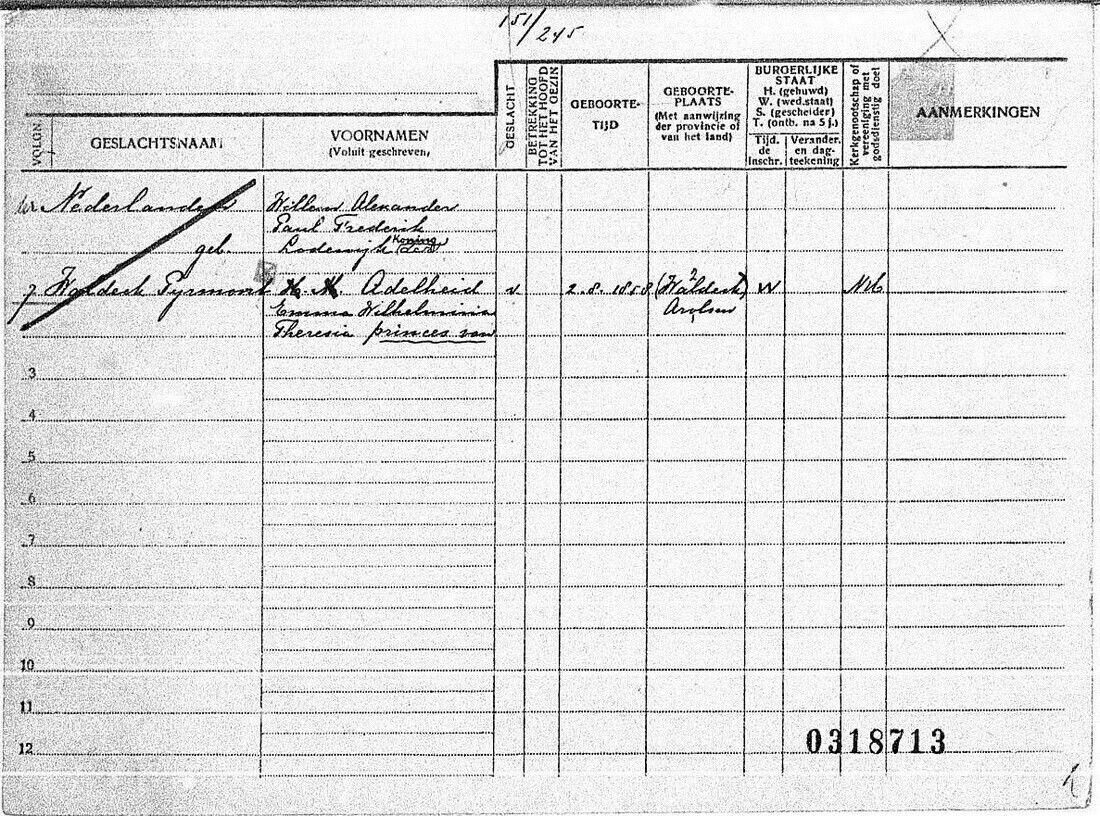 151/245
VOLGN.
GESLACHTSNAAM
VOORNAMEN
(Voluit geschreven)
GESLACHT
BETREKKING TOT HET HOOFD VAN HET GEZIN
GEBOORTE-
TIJD
GEBOORTE-
PLAATS
(Met aanwijzing
der provincie of
van het land)
BURGERLIJKE
STAAT
H. (gehuwd)
W. (wed.staat)
S. (gescheiden)
T. (ontb. na 5 j.)
Tijd.
de
inschr.
Verander.
en dag-
teekening
Kerkgenootschap of
vereeniging met
godsdienstig doel
AANMERKINGEN
Nederlanden Willem Alexander
Paul Frederik
geb. Lodewijk Koning
Waldeck Pyrmont H. M. Adelheid v 2.8.1858 (Waldeck) W NH
Emma Wilhelmina Arolsen
Theresia princes van
3
4
5
6
7
8
9
10
11
12
0318713